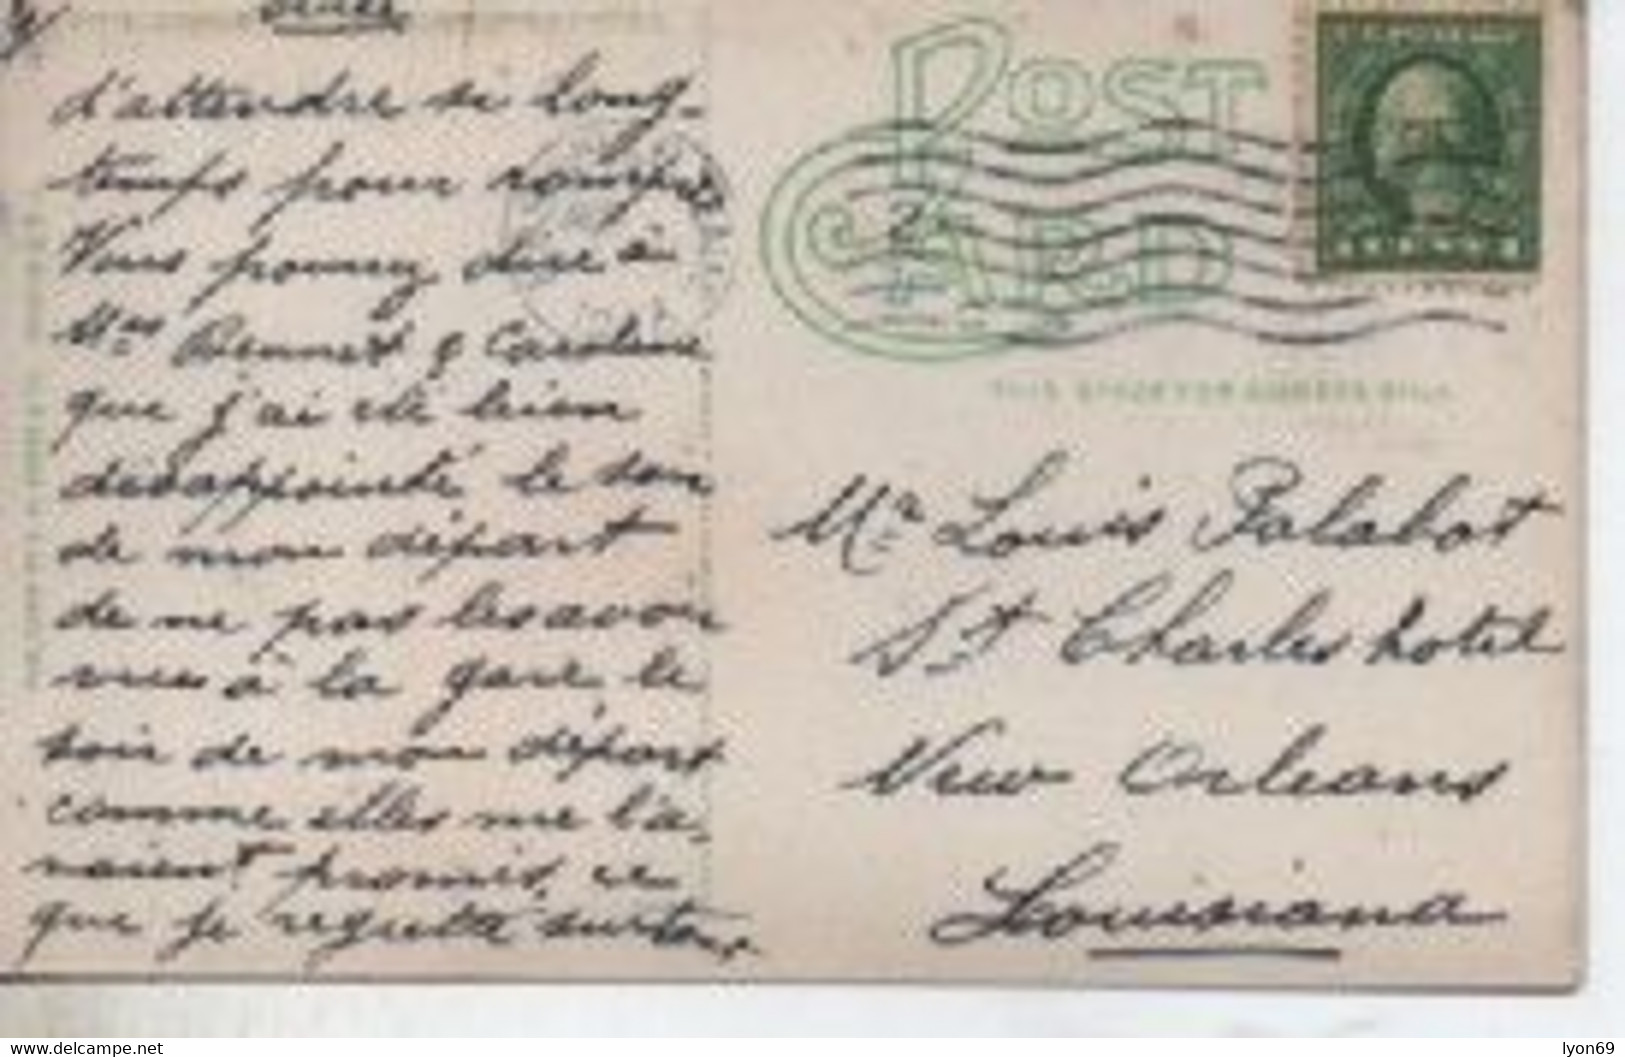 d'attendre si long-
temps pour
Vous pourrez dire à
Mes Bennet & Caroline
que j'ai été bien
desappointé, le
de mon départ
de ne pas les avoir
vues à la gare, le
soir de mon départ
comme elles me l'a-
vaient promis, ce
que je regrette surtout
POST
CARD
THIS SPACE FOR ADDRESS ONLY
Mr Louis Palabot
St Charles hotel
New Orleans
Louisiana
www.delcampe.net
lyon69